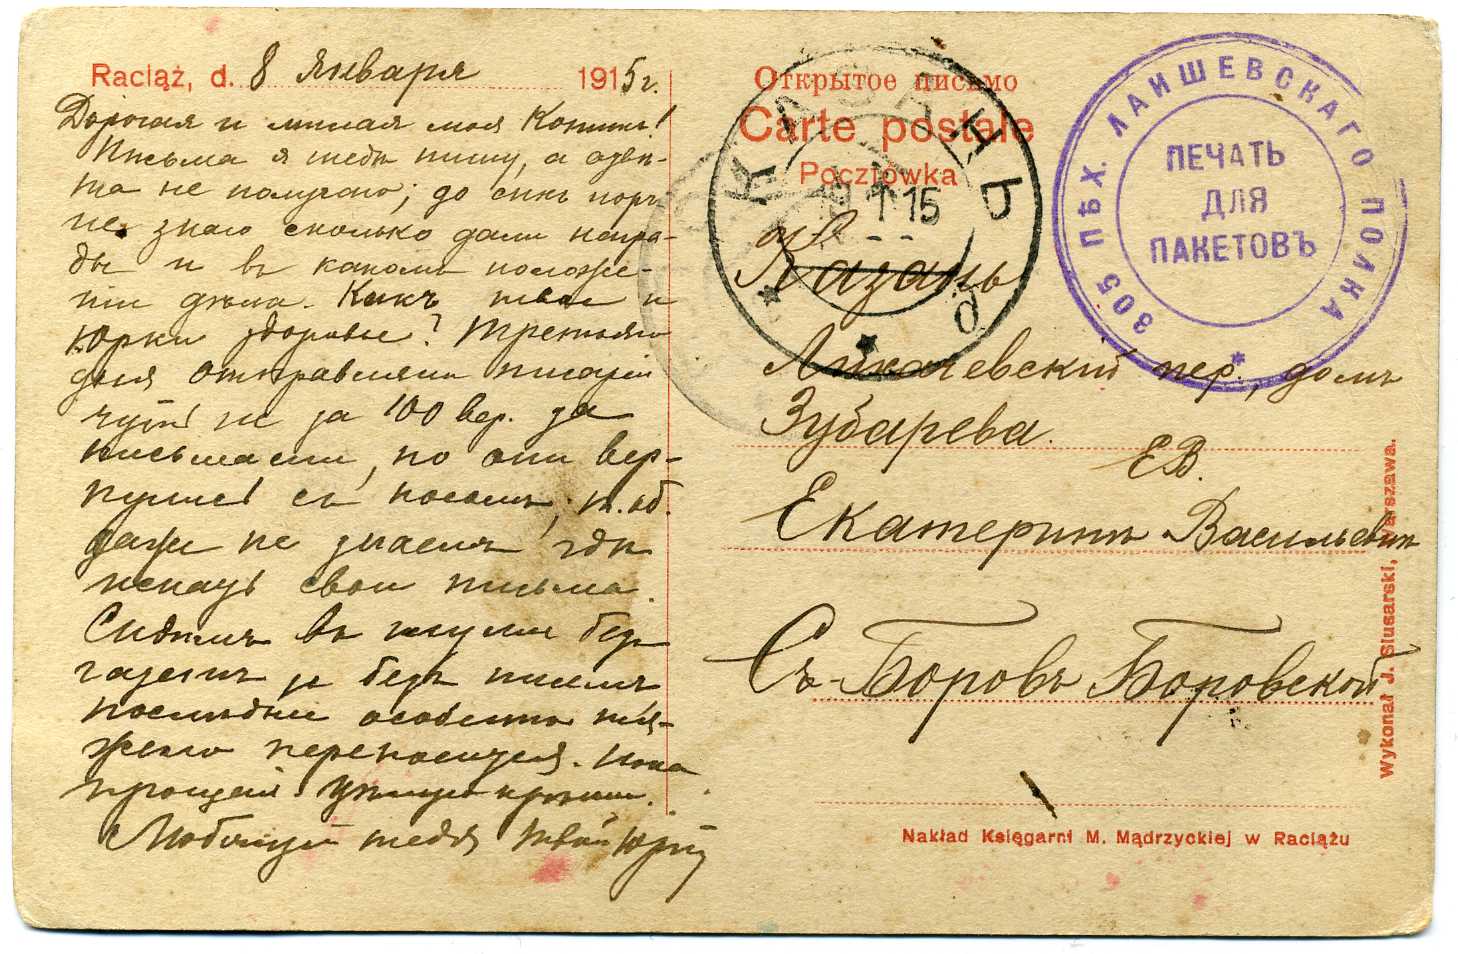 Raciąż, d. 8 января 1915 г.
Дорогая и милая моя
Письма я тебѣ пишу, а отвѣ-
та не получаю; до сихъ поръ
не знаю сколько дали награ-
ды и въ какомъ положе-
нiи дѣла. Какъ твое и
Юрки здоровье? Третьяго
дня отправляли
чуть не за 100 вер. за
письмами, но они вер-
нулись ни съ чѣмъ, т.об.
даже не знаемъ гдѣ
искать свои письма.
Сидимъ въ глуши безъ
газетъ и безъ писемъ
послѣднее особенно тя-
жело переносится. Пока
прощай Цѣлую крѣпко.
Любящiй тебя твой Юрiй
Открытое письмо
Carte postale
Pocztówka
КАЗАНЬ
1 15
г. Казань
Лихачевскiй пер., домъ
Зубарева.
ЕВ.
Екатеринѣ Васильевнѣ
Съ-Боровъ Боровской
305 ПѢХ. ЛАИШЕВСКАГО ПОЛКА
ПЕЧАТЬ
ДЛЯ
ПАКЕТОВЪ
Wykonał J. Slusarski, Warszawa.
Nakład Księgarni M. Mądrzyckiej w Raciążu